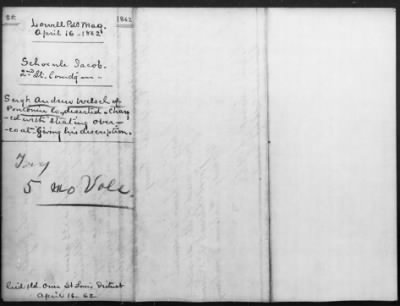 1862
Lowell P. Mag.
April 16, 1862
Schoenle Jacob.
2nd Lt. Comdg
Sergt. Andrew Welsch of
Pontonier Co. deserted & Char
-ged with stealing over-
coat. Giving his description.
5 Mo Vols.
Recd Hd. Qrs St Louis District
April 16. 62